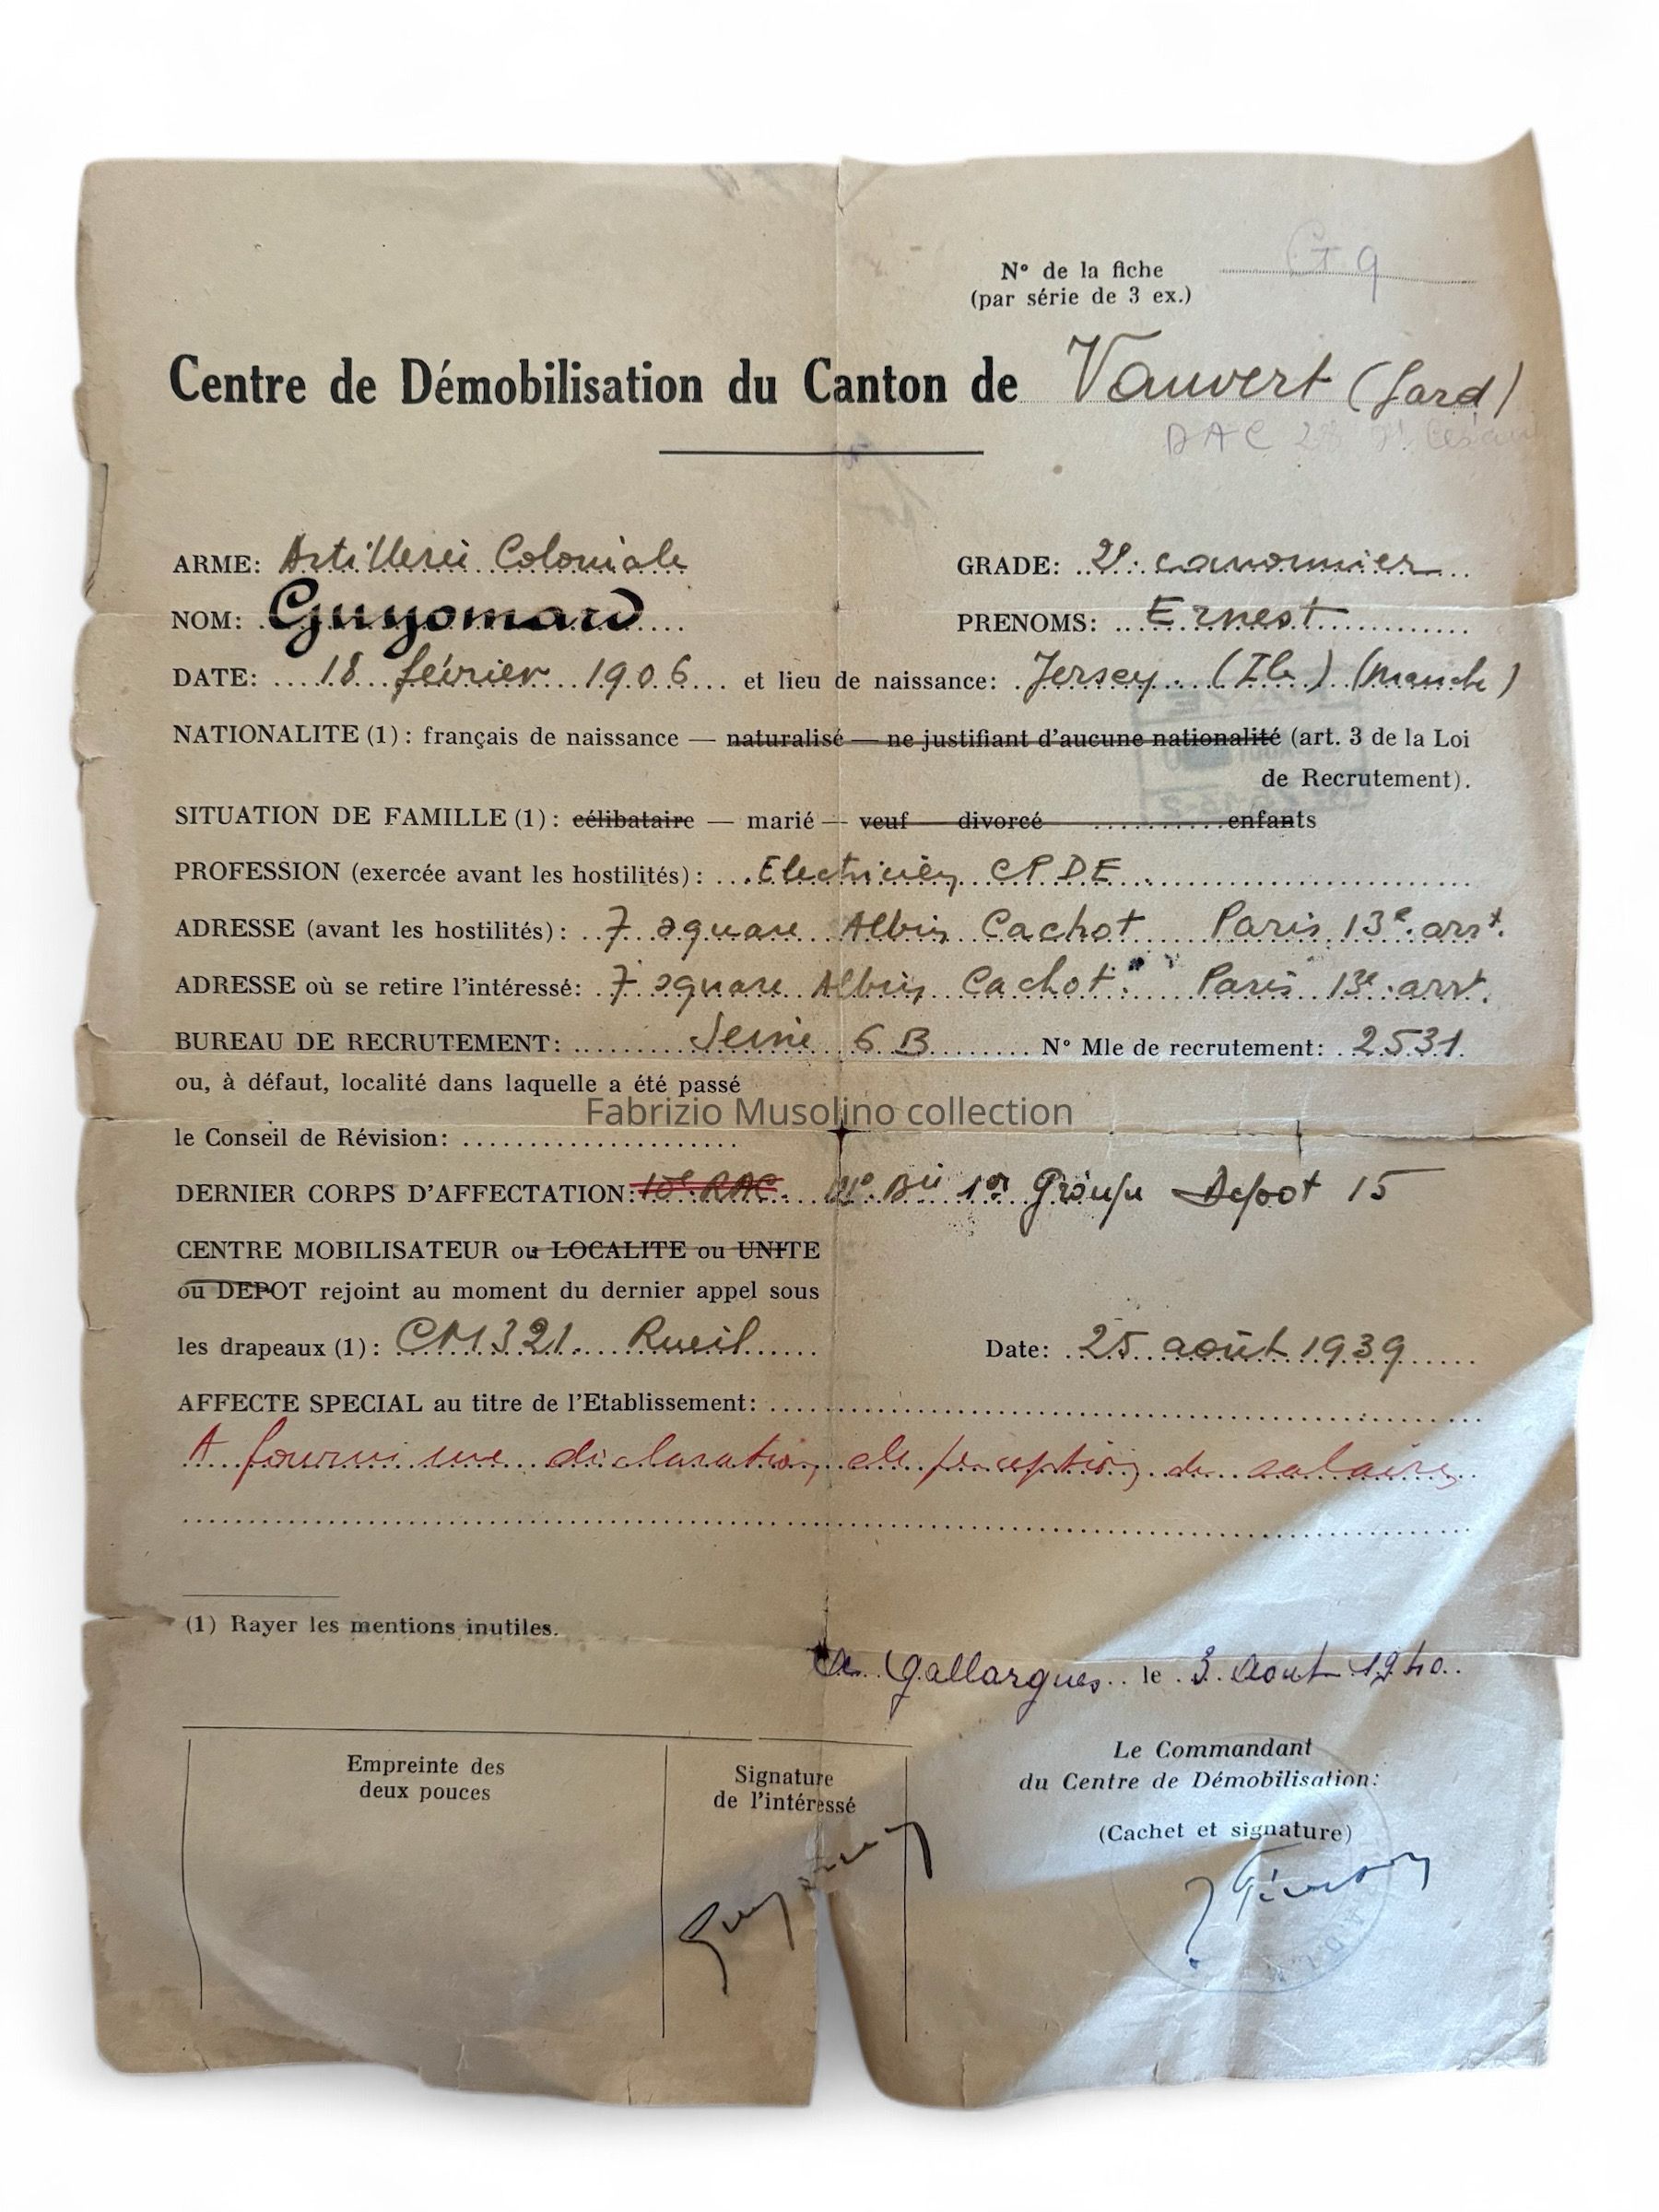 N° de la fiche
(par série de 3 ex.)
Centre de Démobilisation du Canton de Vauvert (Gard)
DAC 28
ARME: Artillerie Coloniale GRADE: 2e canonnier
NOM: Guyomard PRENOMS: Ernest
DATE: 18 février 1906 et lieu de naissance: Jersey (Ile) (Manche)
NATIONALITE (1): français de naissance — naturalisé — ne justifiant d'aucune nationalité (art. 3 de la Loi
de Recrutement).
SITUATION DE FAMILLE (1): célibataire — marié — veuf — divorcé ........... enfants
PROFESSION (exercée avant les hostilités): Electricien CPDE
ADRESSE (avant les hostilités): 7 square Albin Cachot Paris 13e arrt.
ADRESSE où se retire l'intéressé: 7 square Albin Cachot Paris 13e arrt.
BUREAU DE RECRUTEMENT: Seine 6 B N° Mle de recrutement: 2531
ou, à défaut, localité dans laquelle a été passé
Fabrizio Musolino collection
le Conseil de Révision: ......................
DERNIER CORPS D'AFFECTATION: 10e RAC Bie 1er Groupe Depot 15
CENTRE MOBILISATEUR ou LOCALITE ou UNITE
ou DEPOT rejoint au moment du dernier appel sous
les drapeaux (1): CM 321 Rueil Date: 25 août 1939
AFFECTE SPECIAL au titre de l'Etablissement:
A fourni une déclaration de perception de salaire
(1) Rayer les mentions inutiles.
A Gallargues le 3 Aout 1940
Le Commandant
du Centre de Démobilisation:
(Cachet et signature)
Empreinte des
deux pouces
Signature
de l'intéressé
Guyomard